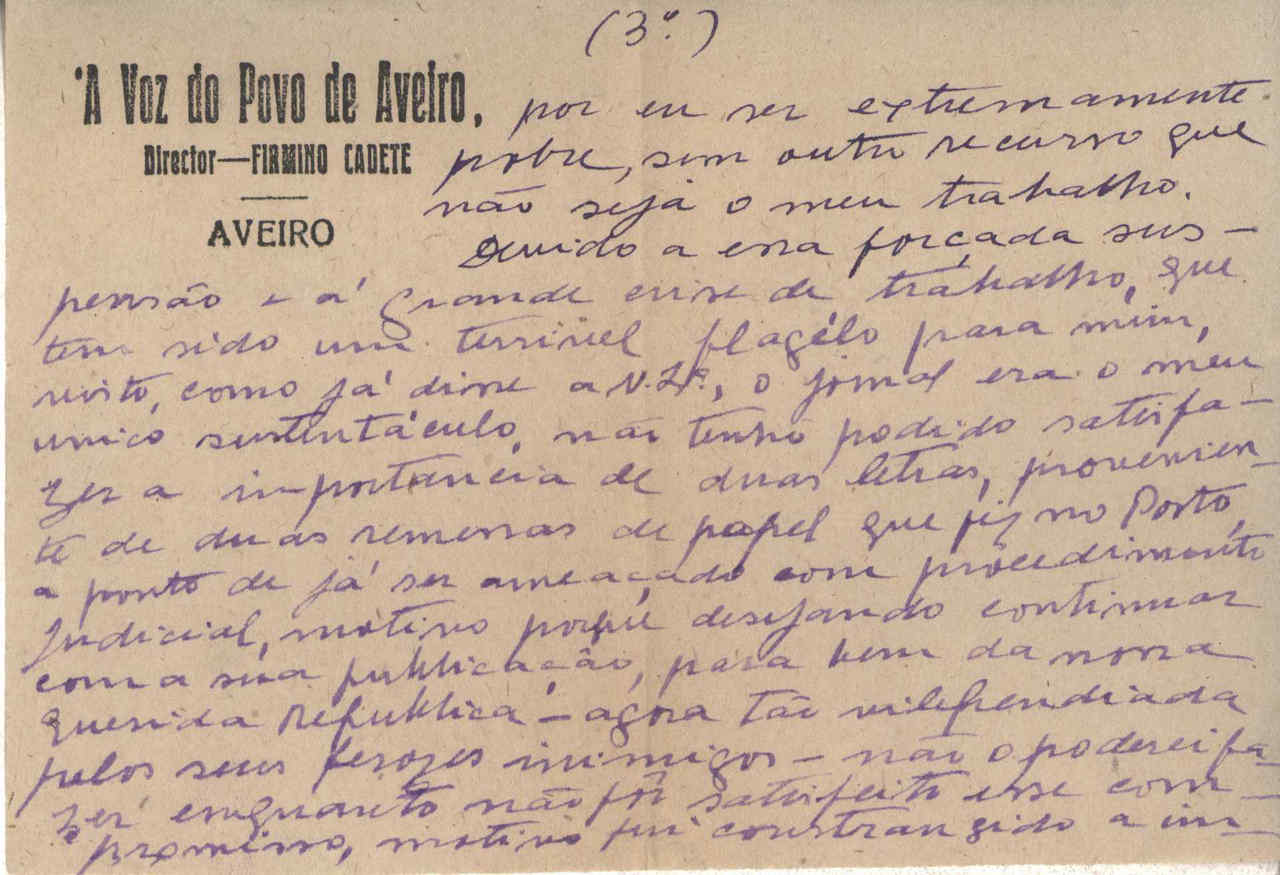 (3º)
"A Voz do Povo de Aveiro,
Director—FIRMINO CADETE
AVEIRO
por eu ser extremamente
pobre, sem outro recurso que
não seja o meu trabalho.
Devido a essa forçada sus-
pensão e á grande crise de trabalho, que
tem sido um terrivel flagélo para mim,
visto, como já disse a V. Exª, o jornal era o meu
unico sustentáculo, não tenho podido satisfa-
zer a importancia de duas letras, provenien-
te de duas remessas de papel que fiz no Porto,
a ponto de já ser ameaçado com procedimento
Judicial, motivo porque desejando continuar
com a sua publicação, para bem da nossa
querida Republica - agora tão vilipendiada
pelos seus ferozes inimigos - não o poderei fa-
zer enquanto não fôr satisfeito esse com-
promisso, motivo fui constrangido a im-